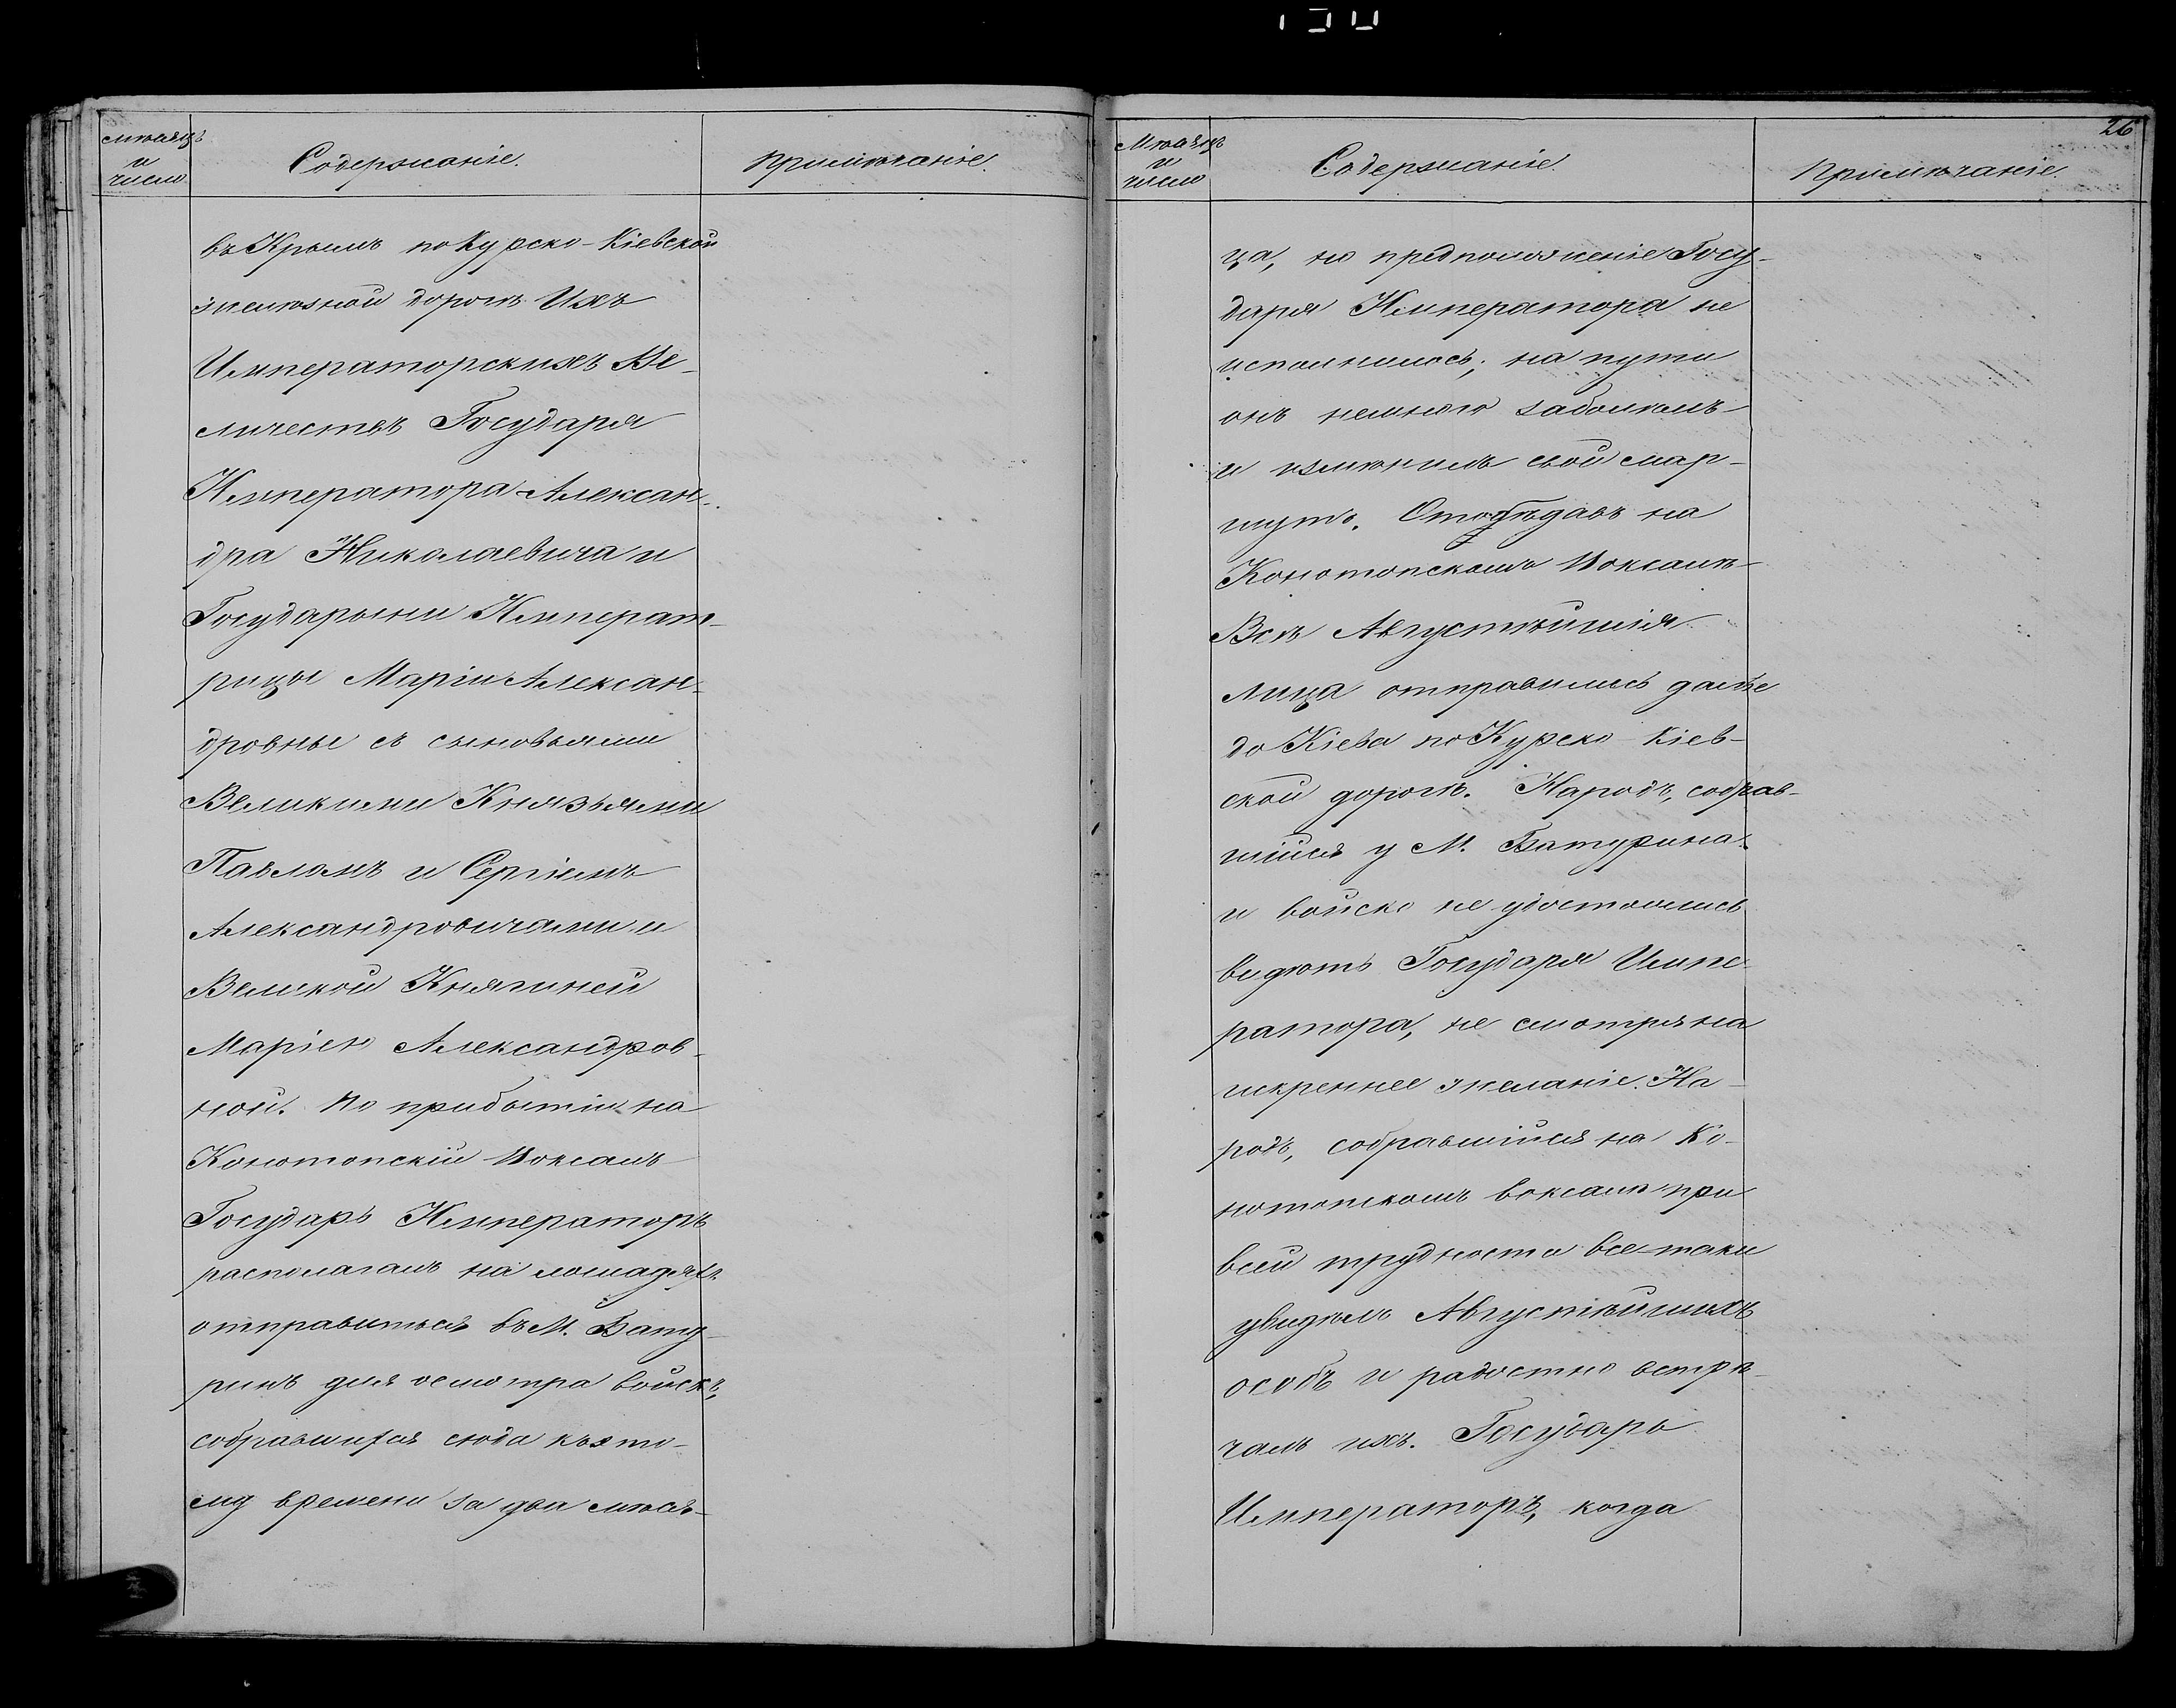 Мѣсяцъ
и
число
Содержаніе.
Примѣчаніе.
въ Крымъ по Курско-Кіевской
желѣзной дорогѣ Ихъ
Императорскихъ Ве-
личествъ Государя
Императора Алексан-
дра Николаевича и
Государыни Императ-
рицы Маріи Алексан-
дровны съ сыновьями
Великими Князьями
Павломъ и Сергіемъ
Александровичами и
Великой Княгиней
Маріею Александров-
ной. По прибытіи на
Конотопскій Вокзалъ
Государь Императоръ
располагалъ на лошадяхъ
отправиться въ М. Бату-
ринъ для осмотра войскъ,
собравшихся сюда къ это-
му времени за два мѣся-
26
Мѣсяцъ
и
число
Содержаніе.
Примѣчаніе.
ца, но предположеніе Госу-
даря Императора не
исполнилось; на пути
онъ немного заболѣлъ
и измѣнилъ свой мар-
шутъ. Отобѣдавъ на
Конотопскомъ Вокзалѣ
Всѣ Августѣйшія
лица отправились далѣе
до Кіева по Курско-Кіев-
ской дорогѣ. Народъ, собрав-
шійся у М. Батурина
и войско не удостоились
видѣть Государя Импе-
ратора, не смотря на
искреннее желаніе. На-
родъ, собравшійся на Ко-
нотопскомъ вокзалѣ при
всей трудности все-таки
увидѣлъ Августѣйшихъ
особъ и радостно встрѣ-
чалъ ихъ. Государь
Императоръ, когда